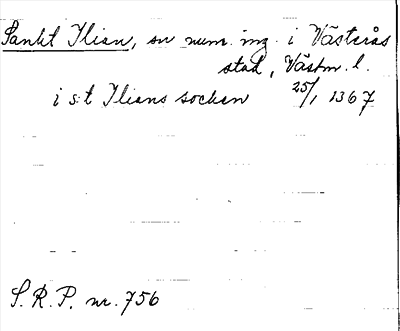 Sankt Ilian, sn num. ing. i Västerås
stad, Västm. l.
i s:t Ilians sochen 25/1 1367
S. R. P. nr. 756